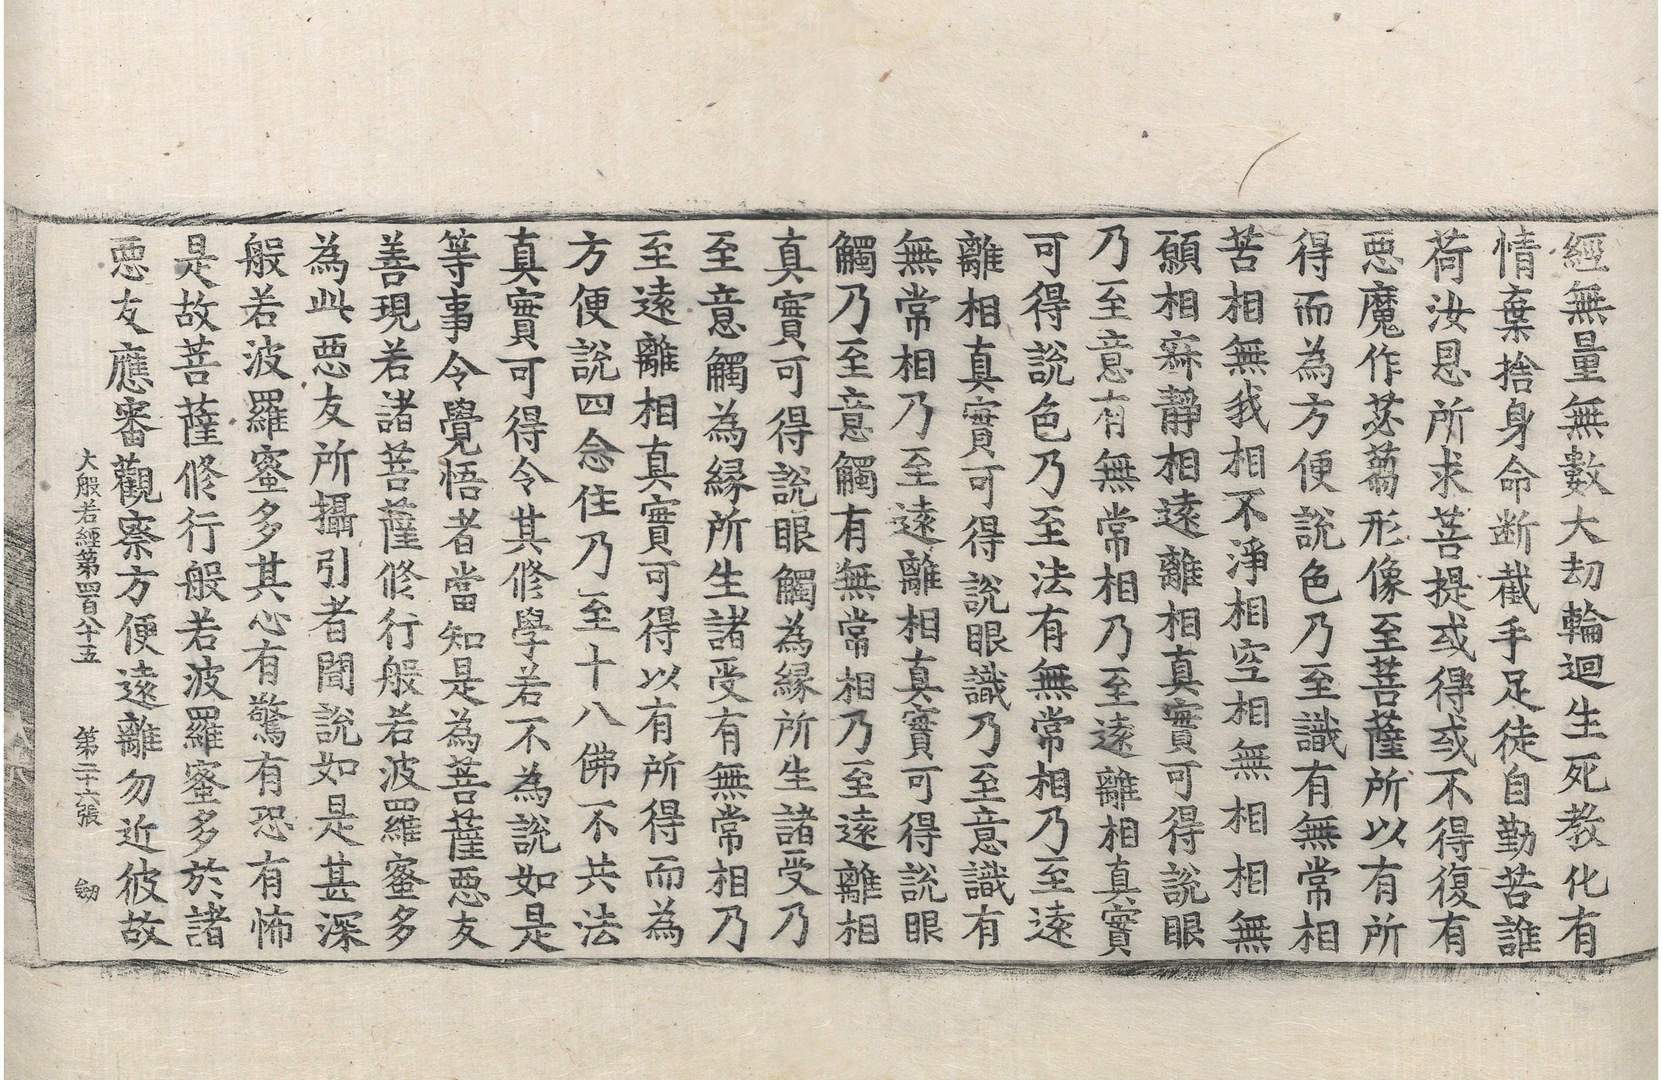 經無量無數大劫輪迴生死教化有
情棄捨身命断截手足徒自勤苦誰
荷汝恩所求菩提或得或不得復有
惡魔作苾蒭形像至菩薩所以有所
得而為方便說色乃至識有無常相
苦相無我相不淨相空相無相相無
願相寂靜相遠離相真實可得說眼
乃至意有無常相乃至遠離相真實
可得說色乃至法有無常相乃至遠
離相真實可得說眼識乃至意識有
無常相乃至遠離相真實可得說眼
觸乃至意觸有無常相乃至遠離相
真實可得說眼觸為緣所生諸受乃
至意觸為緣所生諸受有無常相乃
至遠離相真實可得以有所得而為
方便說四念住乃至十八佛不共法
真實可得令其修學若不為說如是
等事令覺悟者當知是為菩薩惡友
善現若諸菩薩修行般若波羅蜜多
為此惡友所攝引者聞說如是甚深
般若波羅蜜多其心有驚有恐有怖
是故菩薩修行般若波羅蜜多於諸
惡友應審觀察方便遠離勿近彼故
大般若經第四百八十五 第二十六張 劒